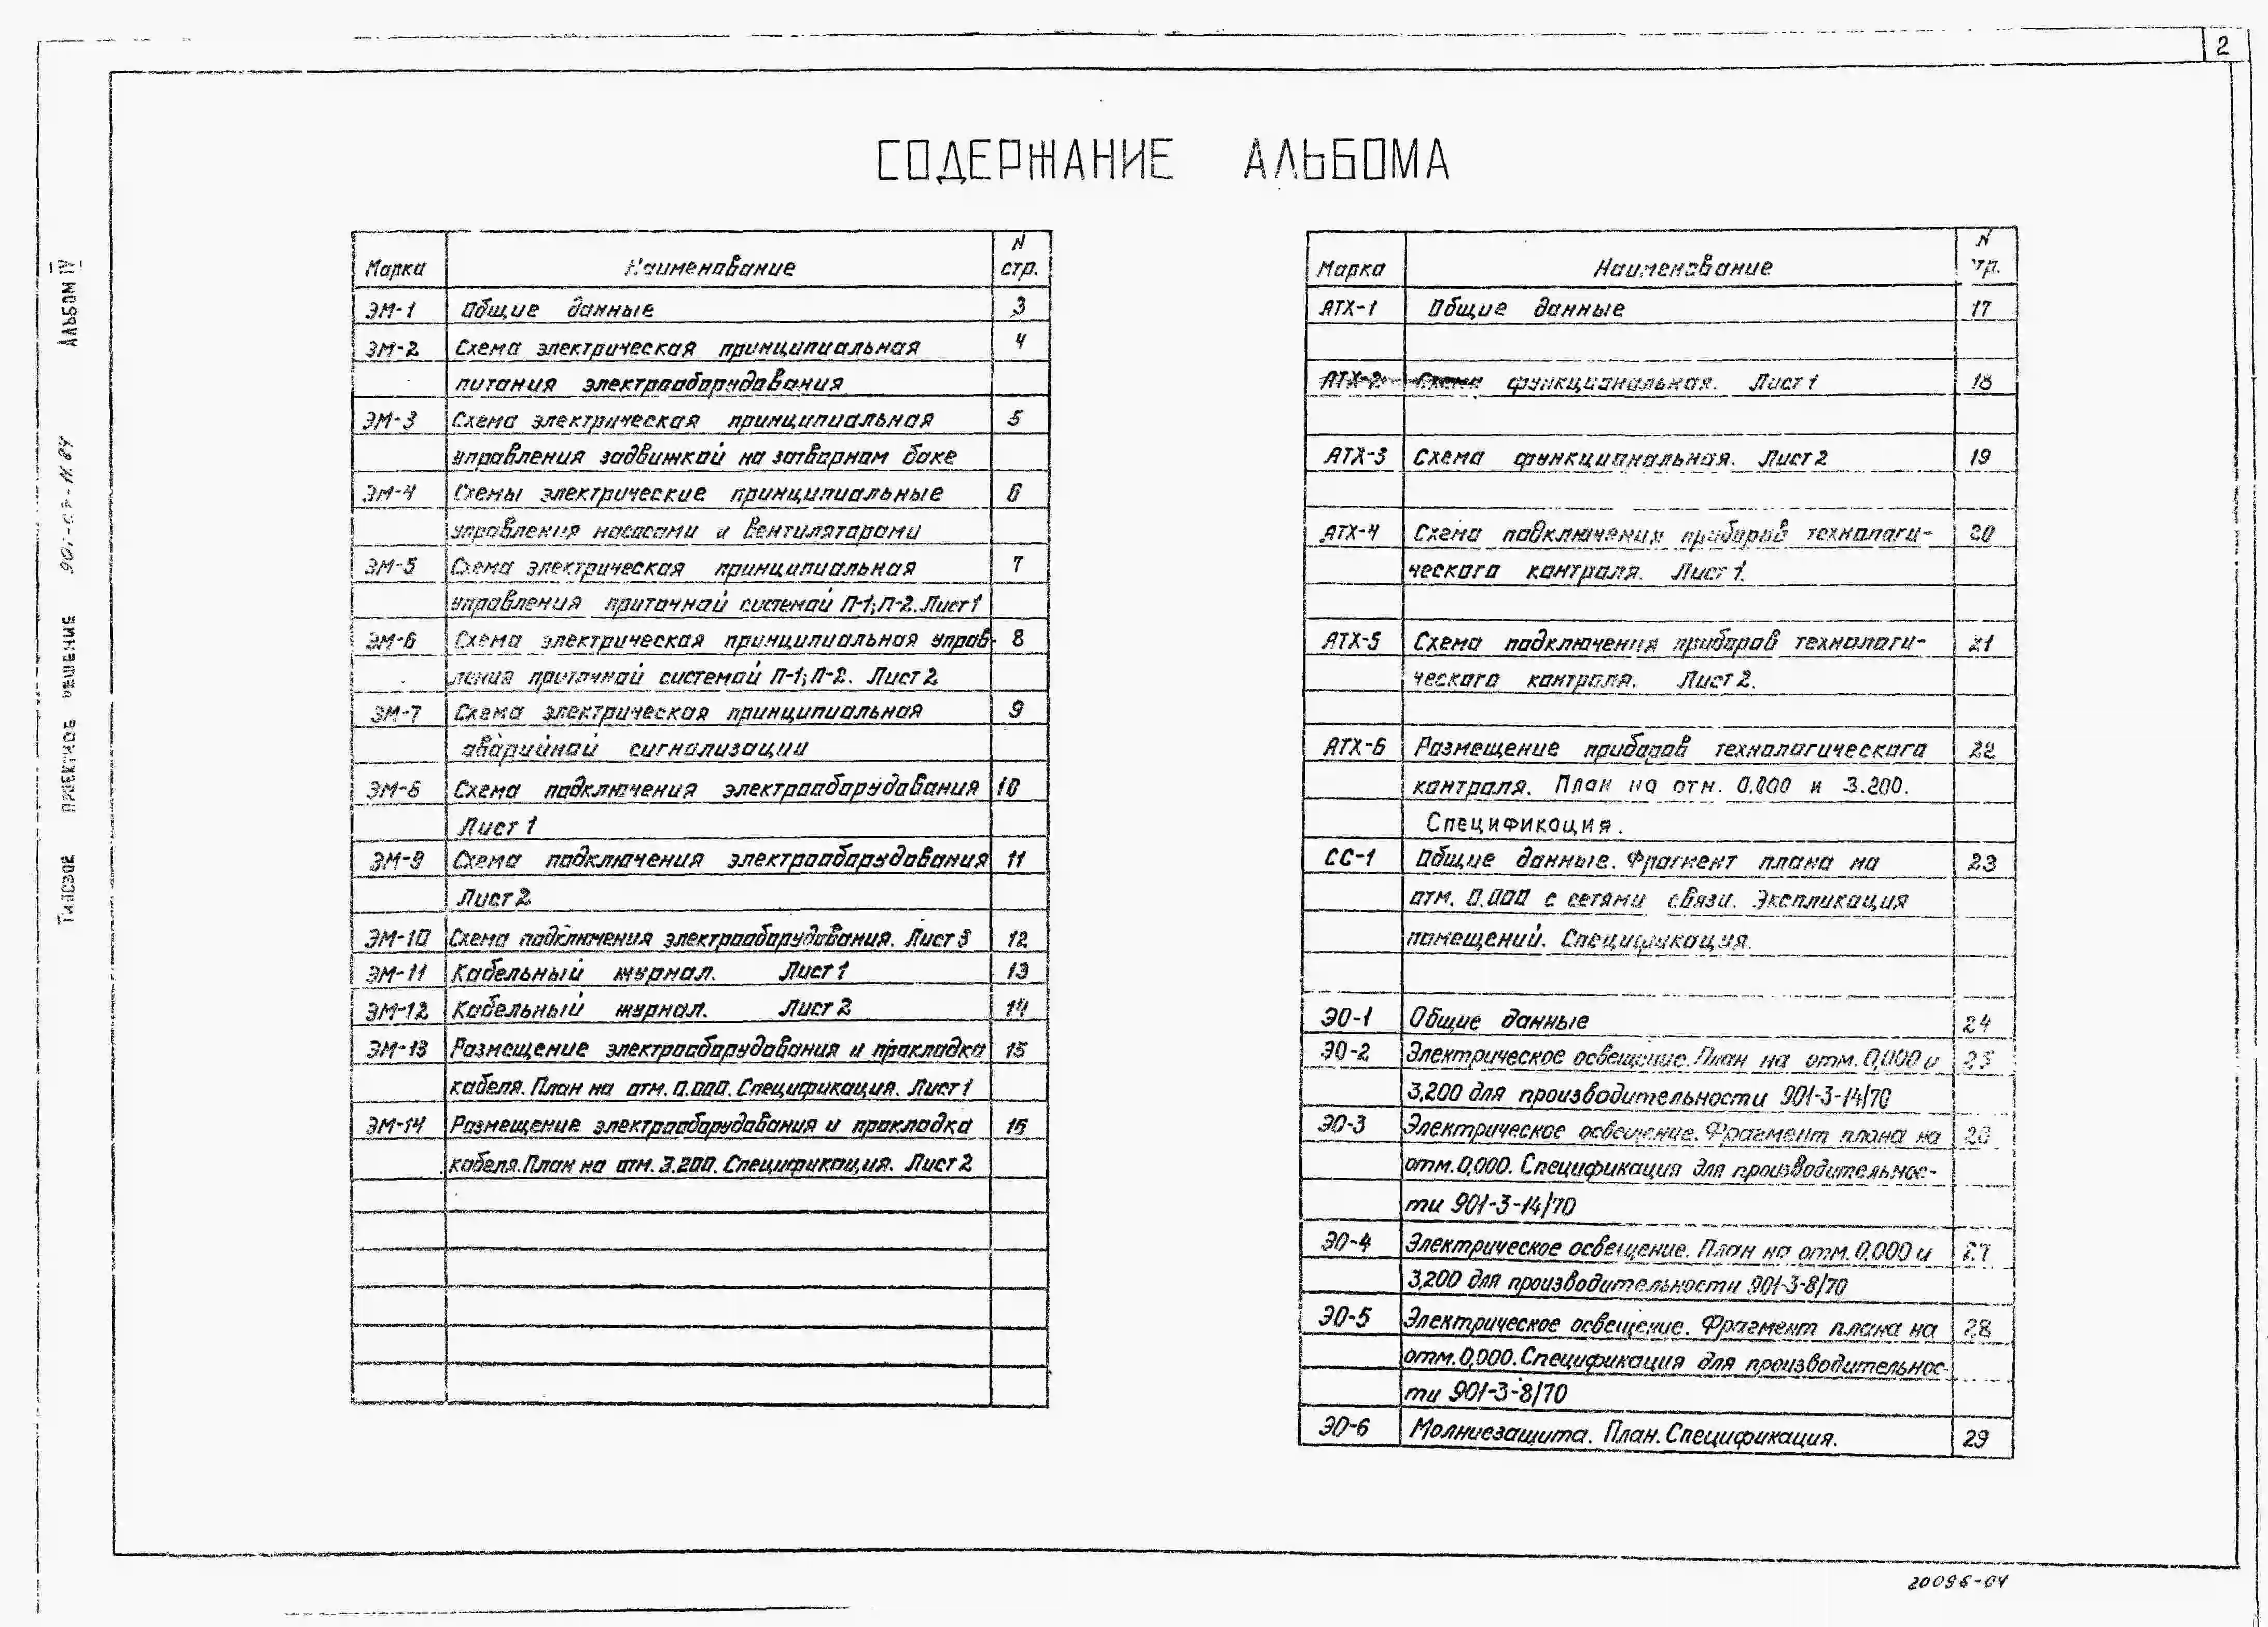 2
СОДЕРЖАНИЕ АЛЬБОМА
Марка Наименование N стр.
ЭМ-1 Общие данные 3
ЭМ-2 Схема электрическая принципиальная 4
питания электрооборудования
ЭМ-3 Схема электрическая принципиальная 5
управления задвижкой на затворном баке
ЭМ-4 Схемы электрические принципиальные 6
управления насосами и вентиляторами
ЭМ-5 Схема электрическая принципиальная 7
управления приточной системой П-1; П-2. Лист 1
ЭМ-6 Схема электрическая принципиальная управ- 8
ления приточной системой П-1; П-2. Лист 2
ЭМ-7 Схема электрическая принципиальная 9
аварийной сигнализации
ЭМ-8 Схема подключения электрооборудования 10
Лист 1
ЭМ-9 Схема подключения электрооборудования 11
Лист 2
ЭМ-10 Схема подключения электрооборудования. Лист 3 12
ЭМ-11 Кабельный журнал. Лист 1 13
ЭМ-12 Кабельный журнал. Лист 2 14
ЭМ-13 Размещение электрооборудования и прокладка 15
кабеля. План на отм. 0.000. Спецификация. Лист 1
ЭМ-14 Размещение электрооборудования и прокладка 16
кабеля. План на отм. 3.200. Спецификация. Лист 2
Марка Наименование N стр.
АТХ-1 Общие данные 17
АТХ-2 Схема функциональная. Лист 1 18
АТХ-3 Схема функциональная. Лист 2 19
АТХ-4 Схема подключения приборов технологи- 20
ческого контроля. Лист 1.
АТХ-5 Схема подключения приборов технологи- 21
ческого контроля. Лист 2.
АТХ-6 Размещение приборов технологического 22
контроля. План на отм. 0.000 и 3.200.
Спецификация.
СС-1 Общие данные. Фрагмент плана на 23
отм. 0.000 с сетями связи. Экспликация
помещений. Спецификация.
ЭО-1 Общие данные 24
ЭО-2 Электрическое освещение. План на отм. 0,000 и 25
3,200 для производительности 901-3-14/70
ЭО-3 Электрическое освещение. Фрагмент плана на 26
отм. 0,000. Спецификация для производительнос-
ти 901-3-14/70
ЭО-4 Электрическое освещение. План на отм. 0,000 и 27
3,200 для производительности 901-3-8/70
ЭО-5 Электрическое освещение. Фрагмент плана на 28
отм. 0,000. Спецификация для производительнос-
ти 901-3-8/70
ЭО-6 Молниезащита. План. Спецификация. 29
Типовое проектное решение Альбом IV
20096-04